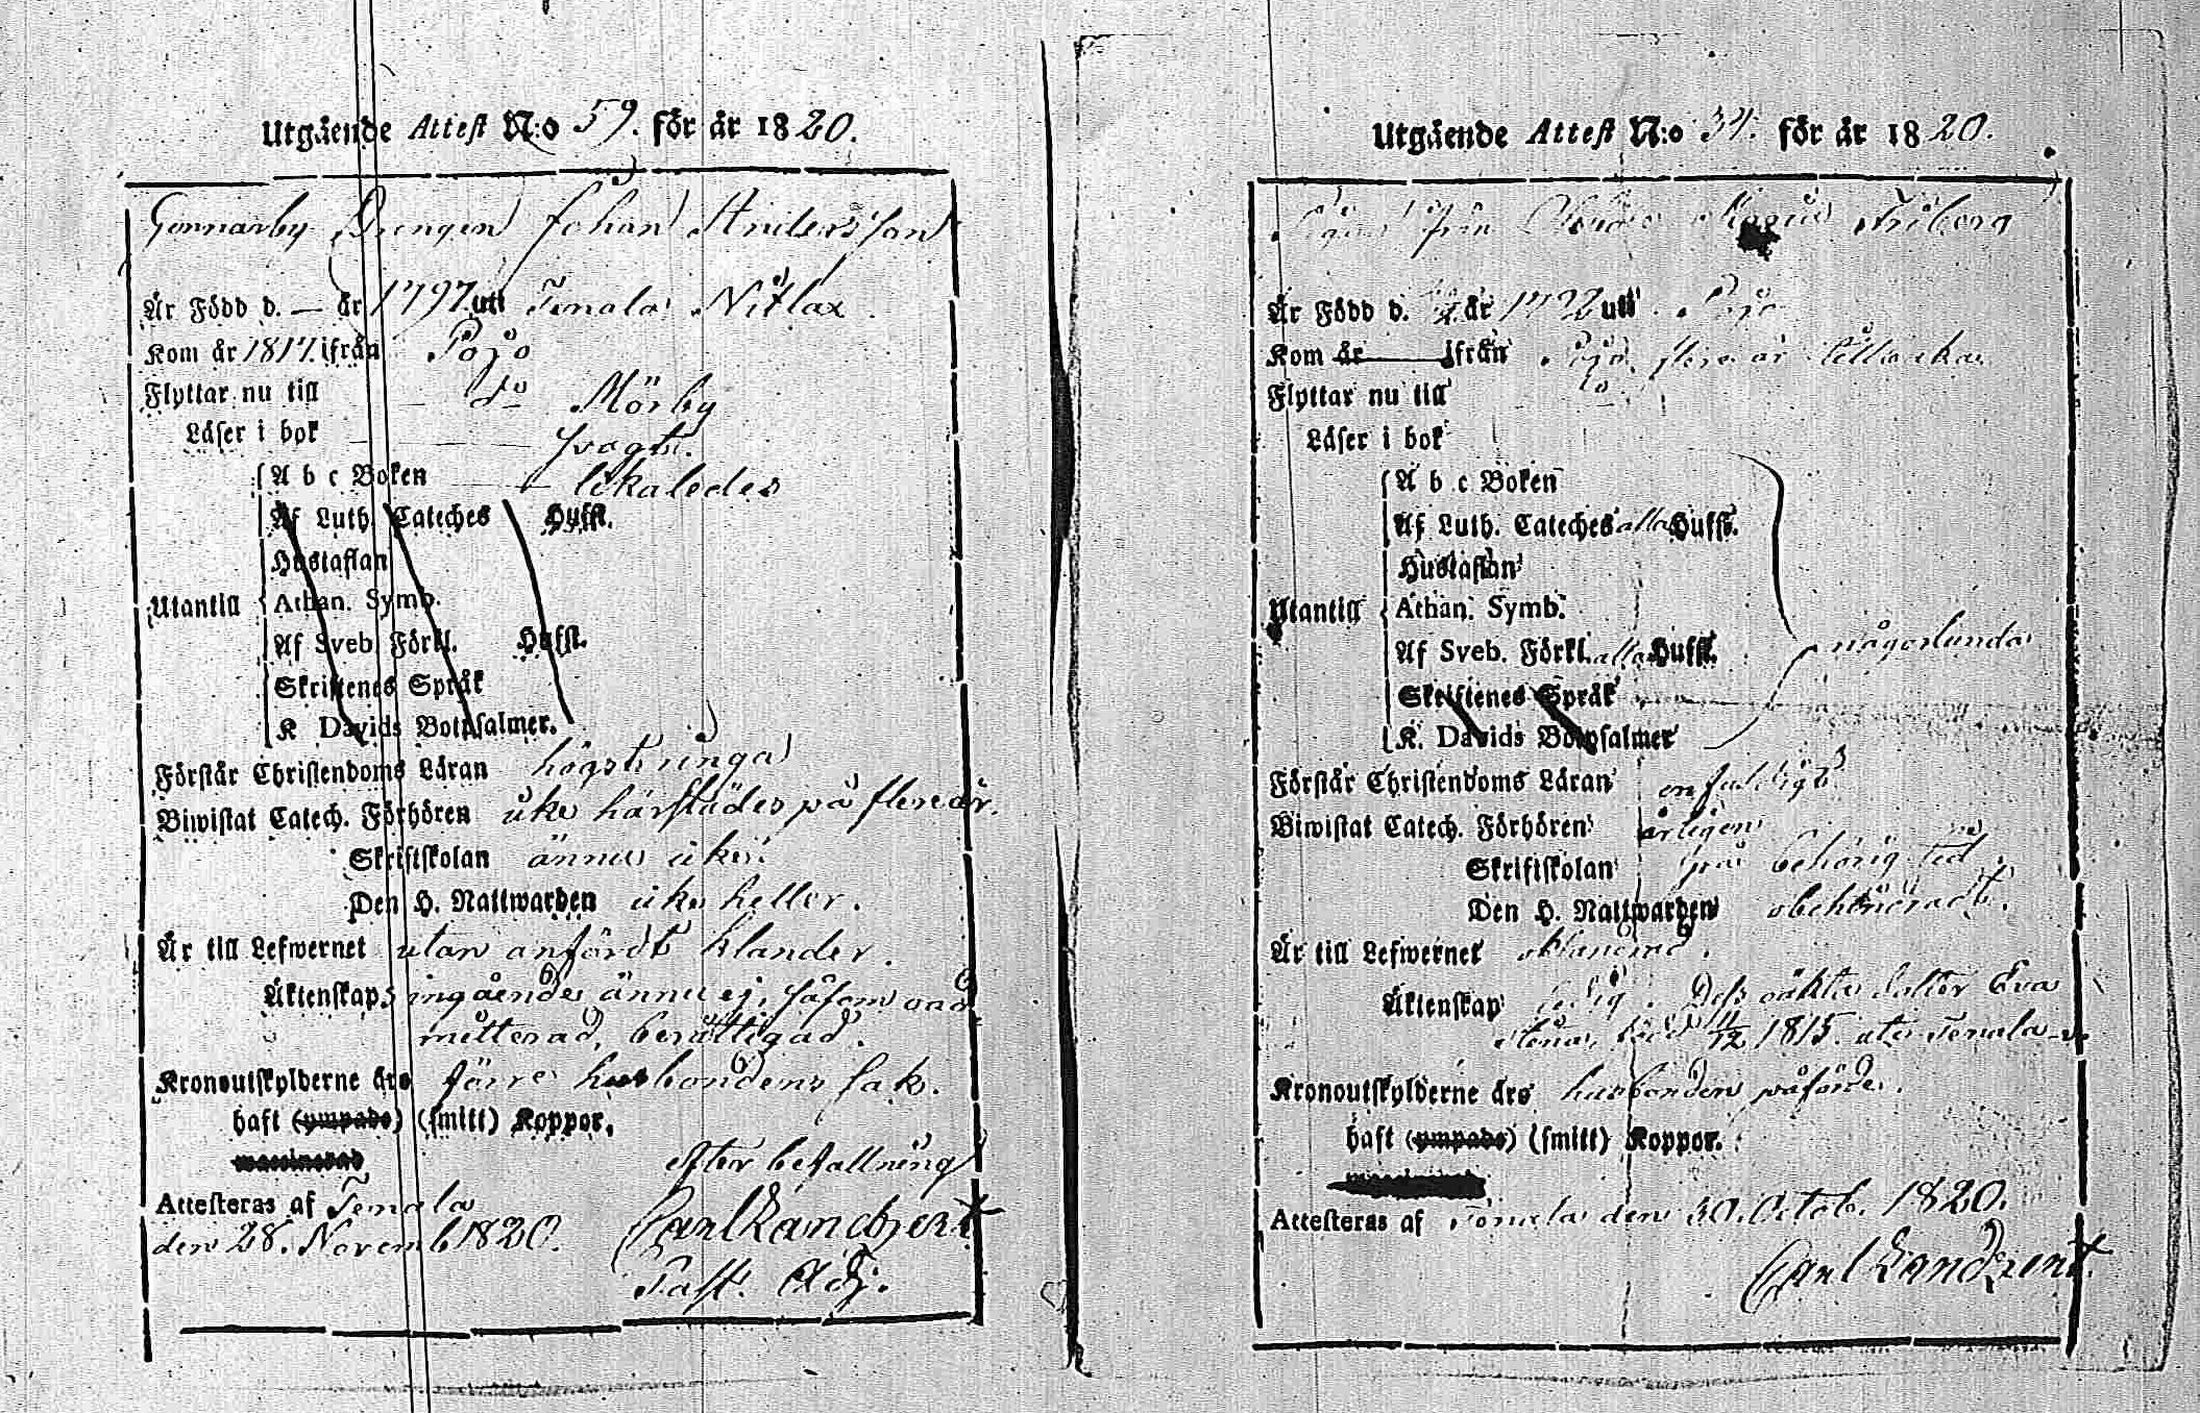 Utgående Attest N:o 59. för år 1820.
Gennarby Drengen Johan Andersson
Är Född d. — år 1797. uti Tenala Nitlax
Kom år 1817. ifrån Pojo
Flyttar nu till do Mörby
Läser i bok svagt.
A b c Boken likaledes
Af Luth. Cateches Hufst.
Hustaflan
Utantill Athan. Symb.
Af Sveb. Förkl. Hufst.
Skriftenes Språk
K Davids Botpsalmer.
Förstår Christendoms Läran högst ringa
Biwistat Catech. Förhören icke härstädes på flere år.
Skriftskolan ännu icke.
Den H. Nattwarden icke heller.
Är till Lefwernet utan anfördt klander.
Äktenskaps ingående ännu ej, såsom oad
mitterad, berättigad.
Kronoutskylderne äro förre husbondens sak.
haft (ympade) (smitt) Koppor.
waccinerad
Efter befallning
Attesteras af Tenala
den 28. Novemb 1820. Carl
Past. Adj.
Utgående Attest N:o 34. för år 1820.
Pigan från Friberg
Är Född d. år uti Pojo
Kom år ifrån Pojo flere år tillbaka
Flyttar nu till do
Läser i bok
A b c Boken
Af Luth. Cateches alla Hufst.
Hustaflan
Utantill Athan. Symb. någorlunda
Af Sveb. Förkl. alla Hufst.
Skriftenes Språk
K. Davids Botpsalmer
Förstår Christendoms Läran enfaldigt
Biwistat Catech. Förhören årligen
Skriftskolan på behörig tid
Den H. Nattwarden obehindradt.
Är till Lefwernet oklandrad.
Äktenskap ledig. Dess oäkta dotter Eva
Stina, född 11/12 1815. uti Tenala
Kronoutskylderne äro husbonden påförde.
haft (ympade) (smitt) Koppor.
Attesteras af Tenala den 30. Octob. 1820.
Carl